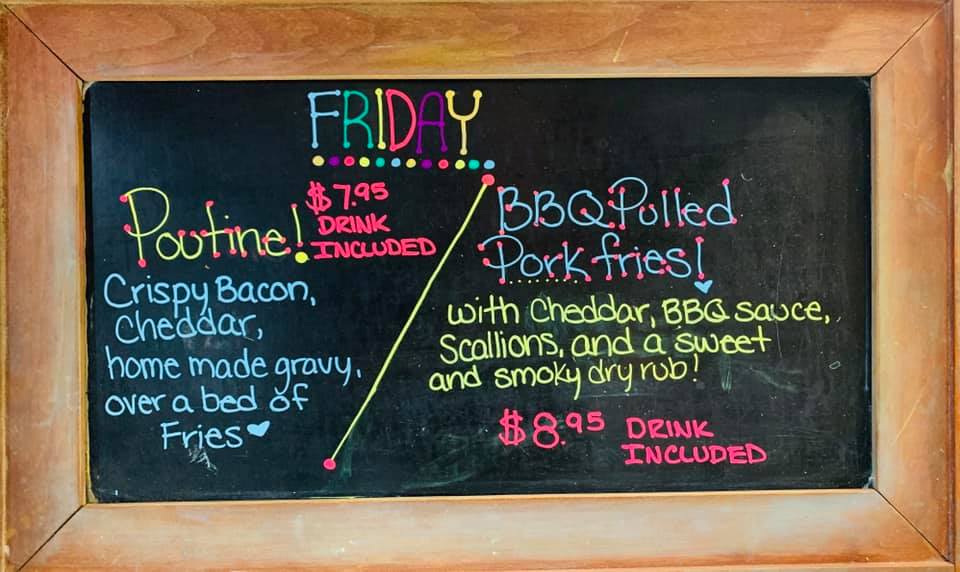 FRIDAY
Poutine!
$7.95
DRINK
INCLUDED
Crispy Bacon,
Cheddar,
home made gravy,
over a bed of
Fries
BBQ Pulled
Pork fries!
with Cheddar, BBQ sauce,
Scallions, and a sweet
and smoky dry rub!
$8.95 DRINK
INCLUDED